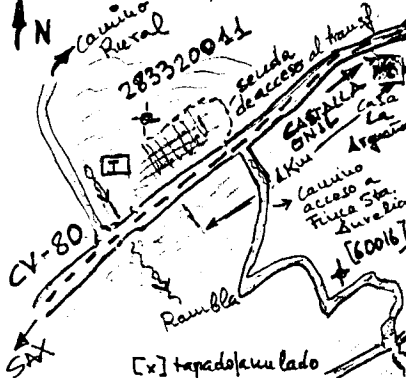 N
Camino
Rural
283320011
senda
de acceso al transf.
CASTALLA
ONIL
Casa
La
1 Km
Camino
acceso a
Finca Sta.
Aurelia
[60016]
CV-80
Rambla
SAX
[x] tapado/anulado